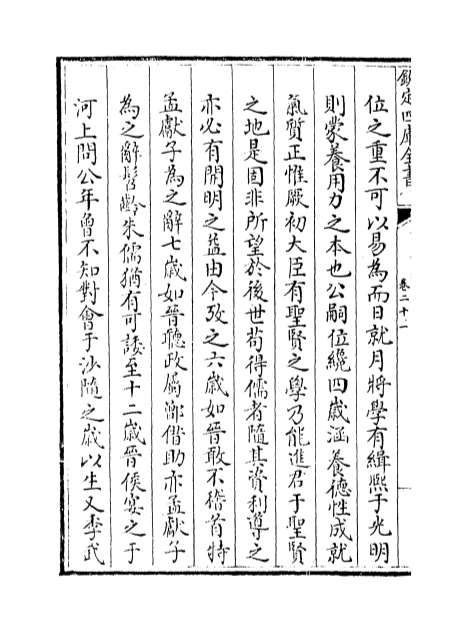 欽定四庫全書
卷二十一
位之重不可以易為而日就月將學有緝熙于光明
則蒙養用力之本也公嗣位纔四歲涵養德性成就
氣質正惟厥初大臣有聖賢之學乃能進君于聖賢
之地是固非所望於後世苟得儒者隨其資利導之
亦必有開明之益由今攷之六歲如晉敢不稽首特
孟獻子為之辭七歲如晉聽政屬鄫借助亦孟獻子
為之辭髫齡朱儒猶有可諉至十二歲晉侯宴之于
河上問公年曾不知對會于沙隨之歲以生又季武